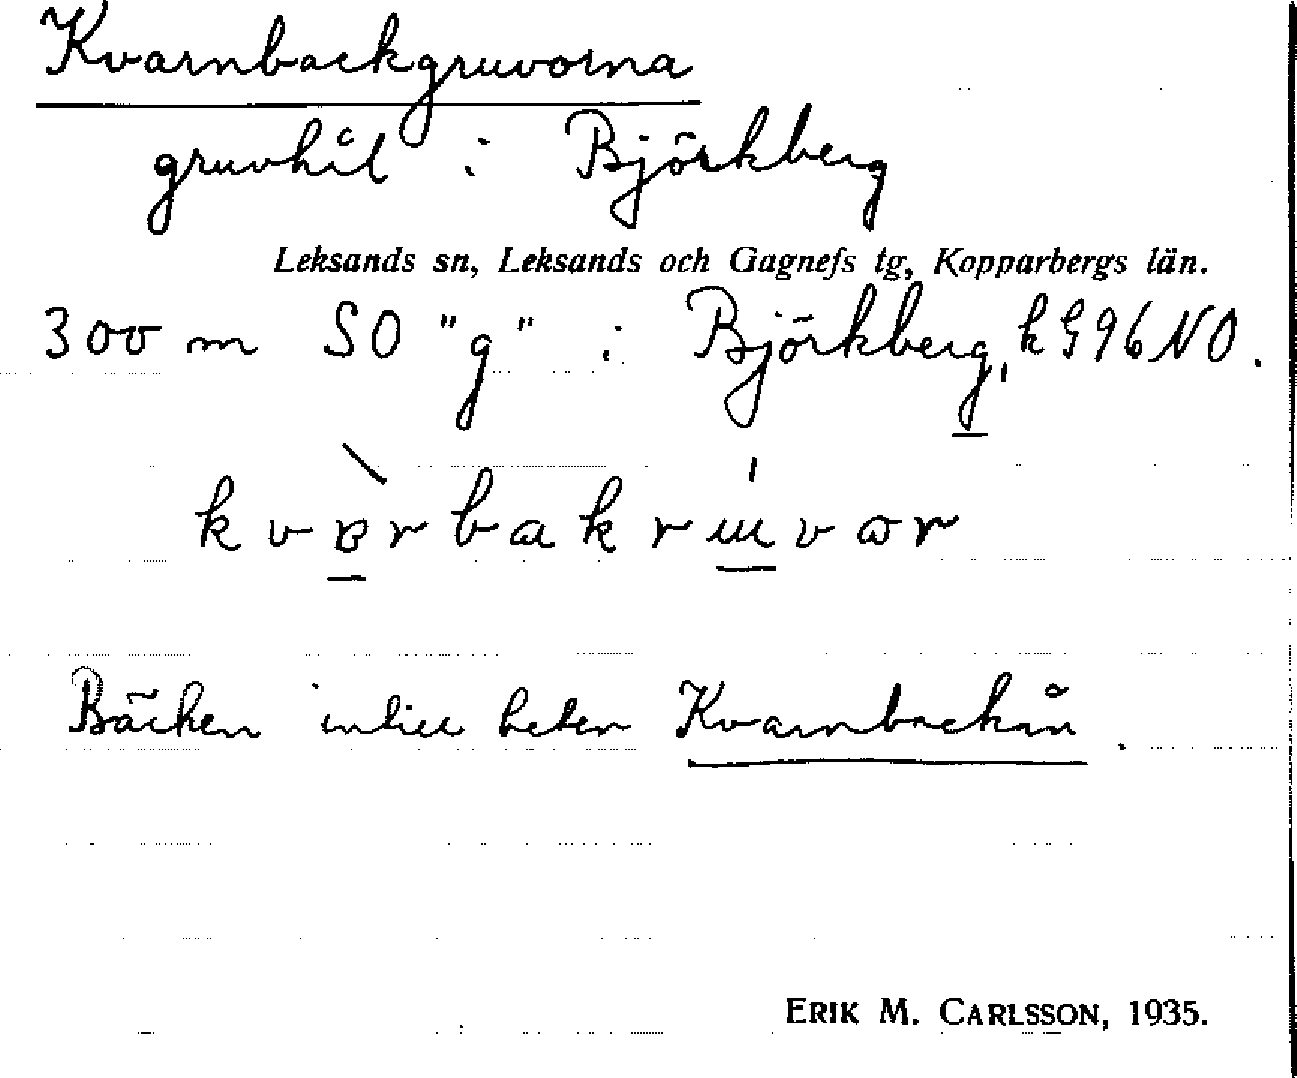 Kvarnbackgruvorna
gruvhål i Björkberg
Leksands sn, Leksands och Gagnefs tg, Kopparbergs län.
300 m SO "g" i Björkberg, k G96NO.
Bäcken intill heter Kvarnbackån.
ERIK M. CARLSSON, 1935.